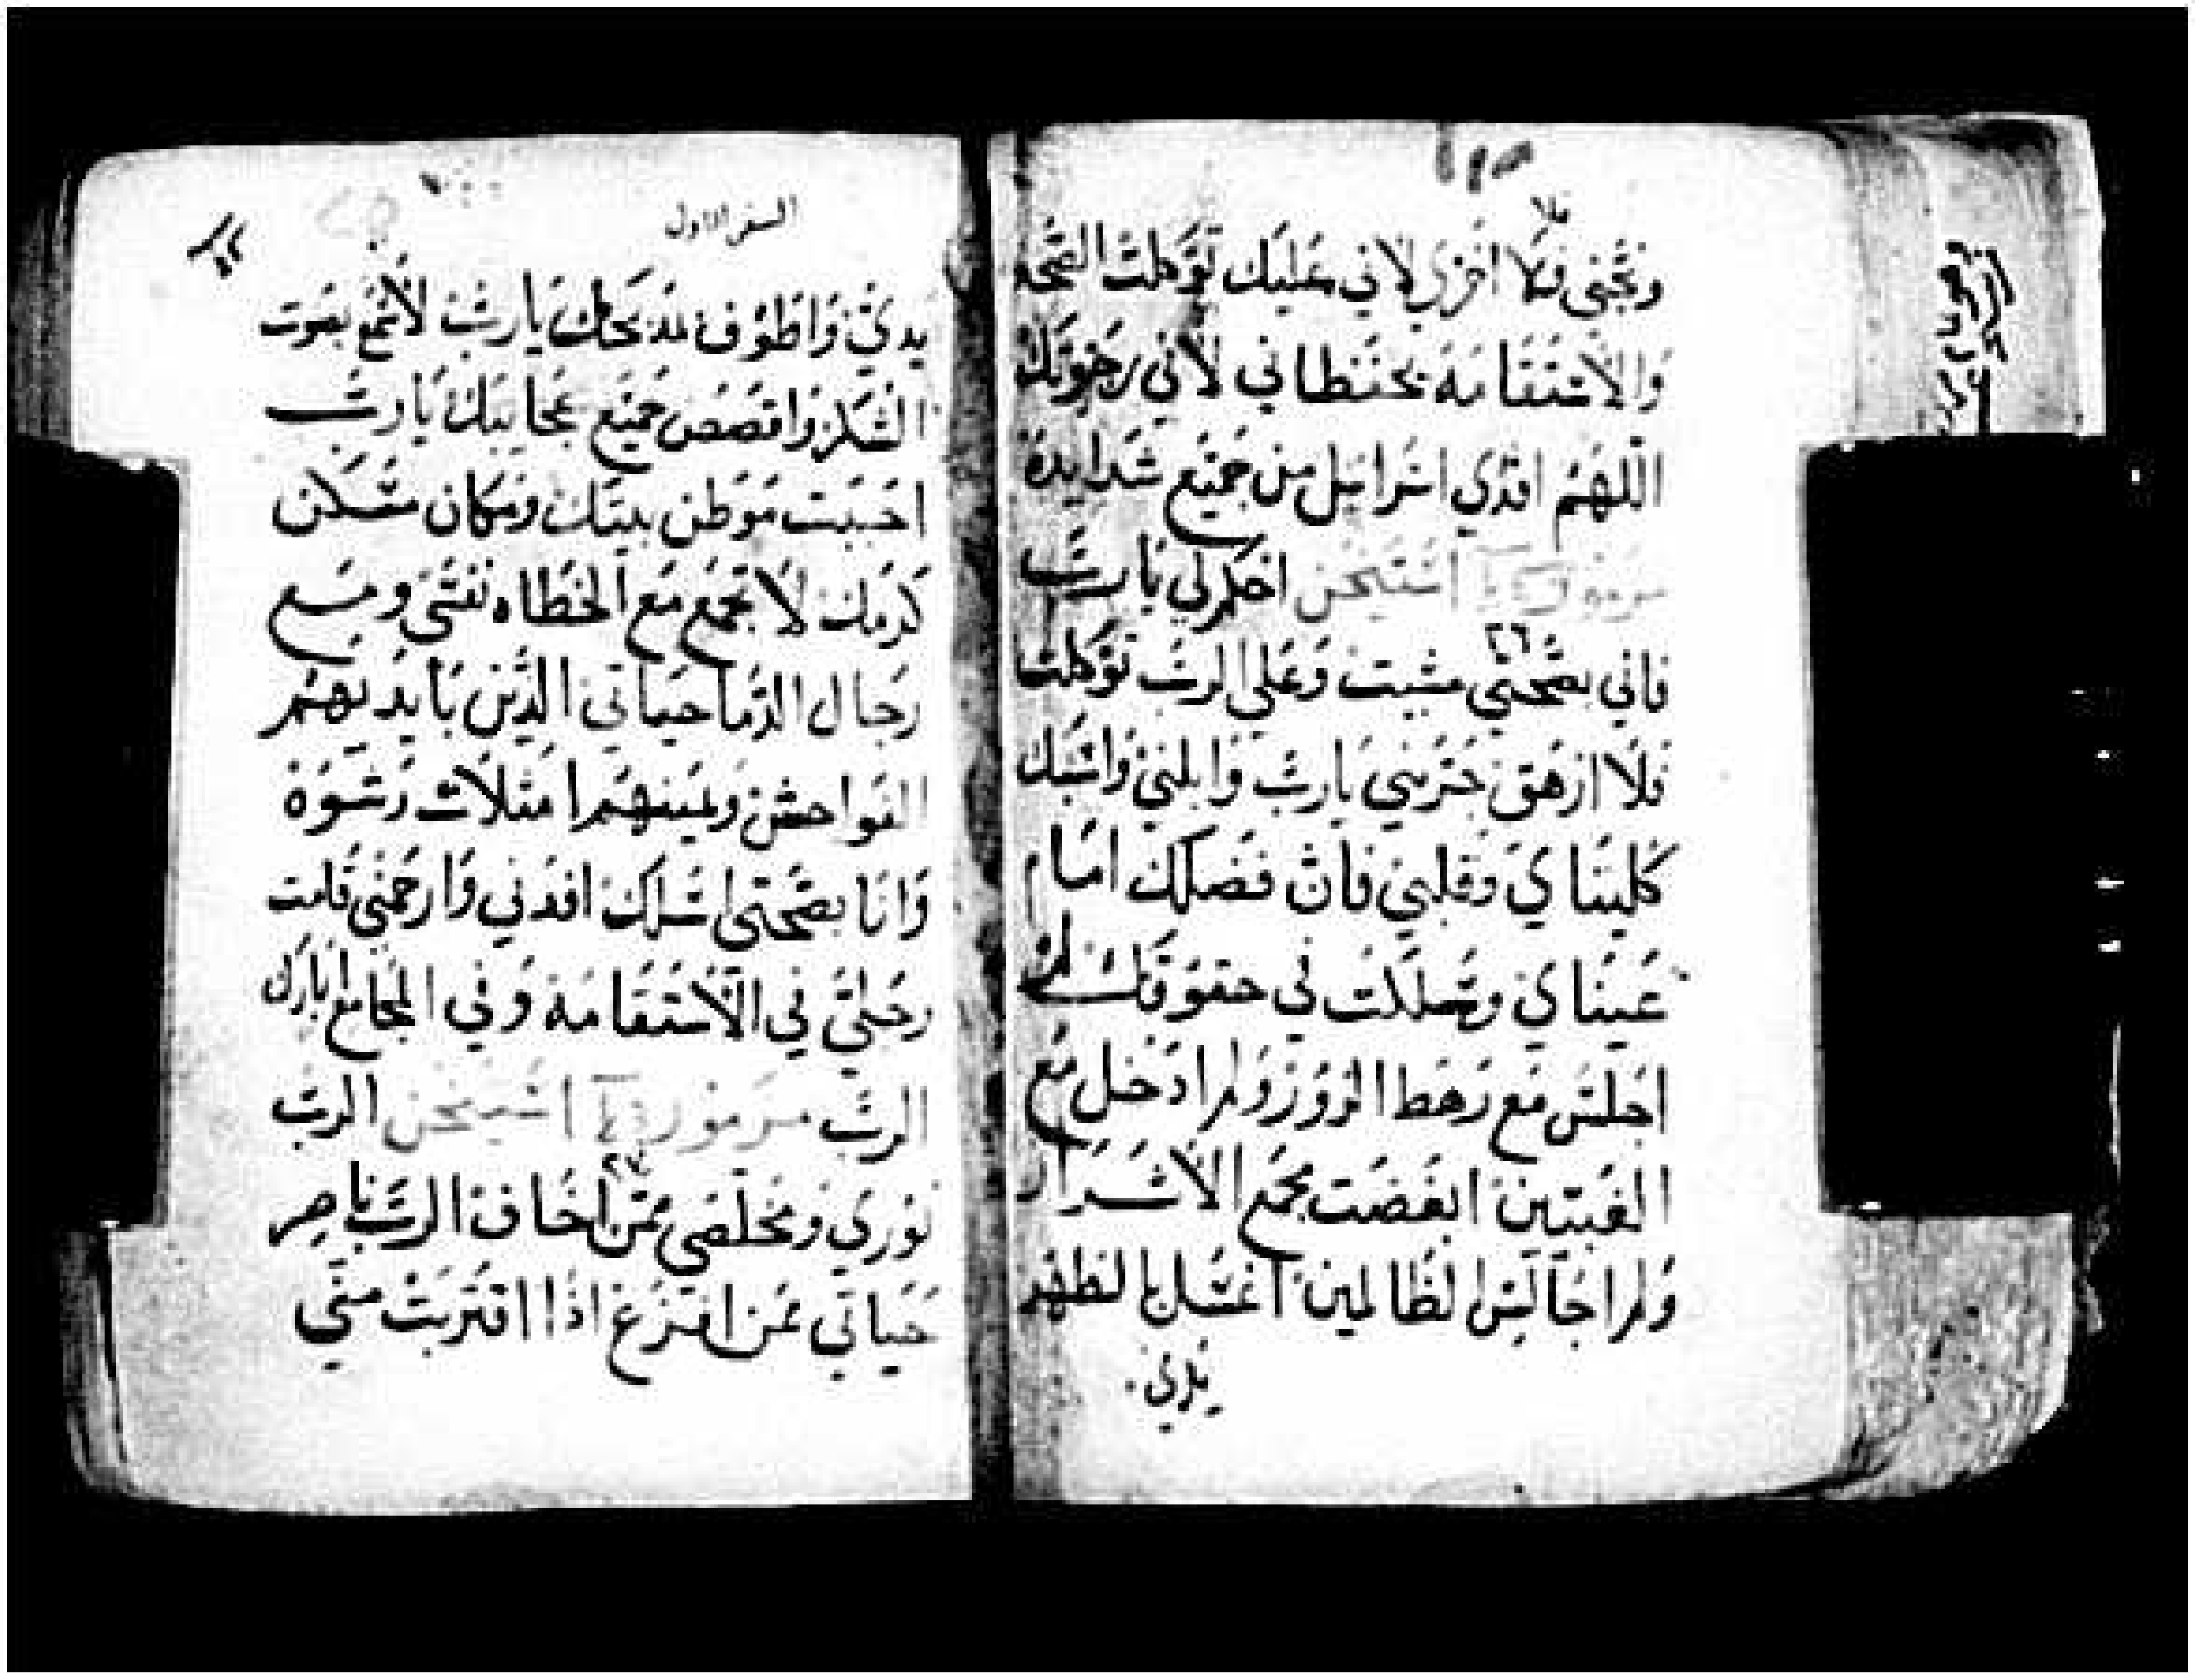 ونجني فلا اخزي لاني عَليَك توَكلت الصّحة
وَالاسْتقَامَة يحَفظاني لأني رجَوتك
اللهُمَّ افدي اسَرايل من جَميَع شدَايدَهُ
اسْتيخُن احكمْ لي يَا ربّ
فاني بصّحتي مشيت وَعَلي الربّ توَكلت
٢٦
فلَا ازهَق جَرّبني يَارَبّ وَابلني وَاسْبك
كليتَاي وَقلبي فانّ فضلك امَام
عَينَاي وتمَلكت في حقوَقك لم
اجلسَ مَع رَهَط الزوُر وَلم ادخل مَع
الغَبيّين ابغضَت مجَمع الاشرَار
وَلم اجَالسَ الظَالمين اغسَل بالطهر
يَدي
السفر الاول
يَديَّ وَاطوُف بمذبحَك يَاربّ لأسْمَع بصَوت
الشكر وَاقصَص جَميَع عجَايبَك يَاربّ
احَببَت مَوَطن بيتَك ومَكان مسَكن
كرمَك لَا تجمَع مَع الخَطاه نفسَي ومَع
رجَال الدّمَا حيَاتي الذّين بَايدَيهُم
الفوَاحش ويمَينهُم امتلَات رَشوَة
وَانَا بصّحتي اسَلك افدَني وَارحَمني قامت
رجَليَّ في الاسْتقَامَة وَفي المجَامع ابَارك
الربّ مَزمَور اسْتيخُن الربّ
٢٧
نوَري ومخَلصَي ممّن اخَاف الربّ نَاصر
حَيَاتي ممَن افزَع اذَا اقترَبَتْ منّي